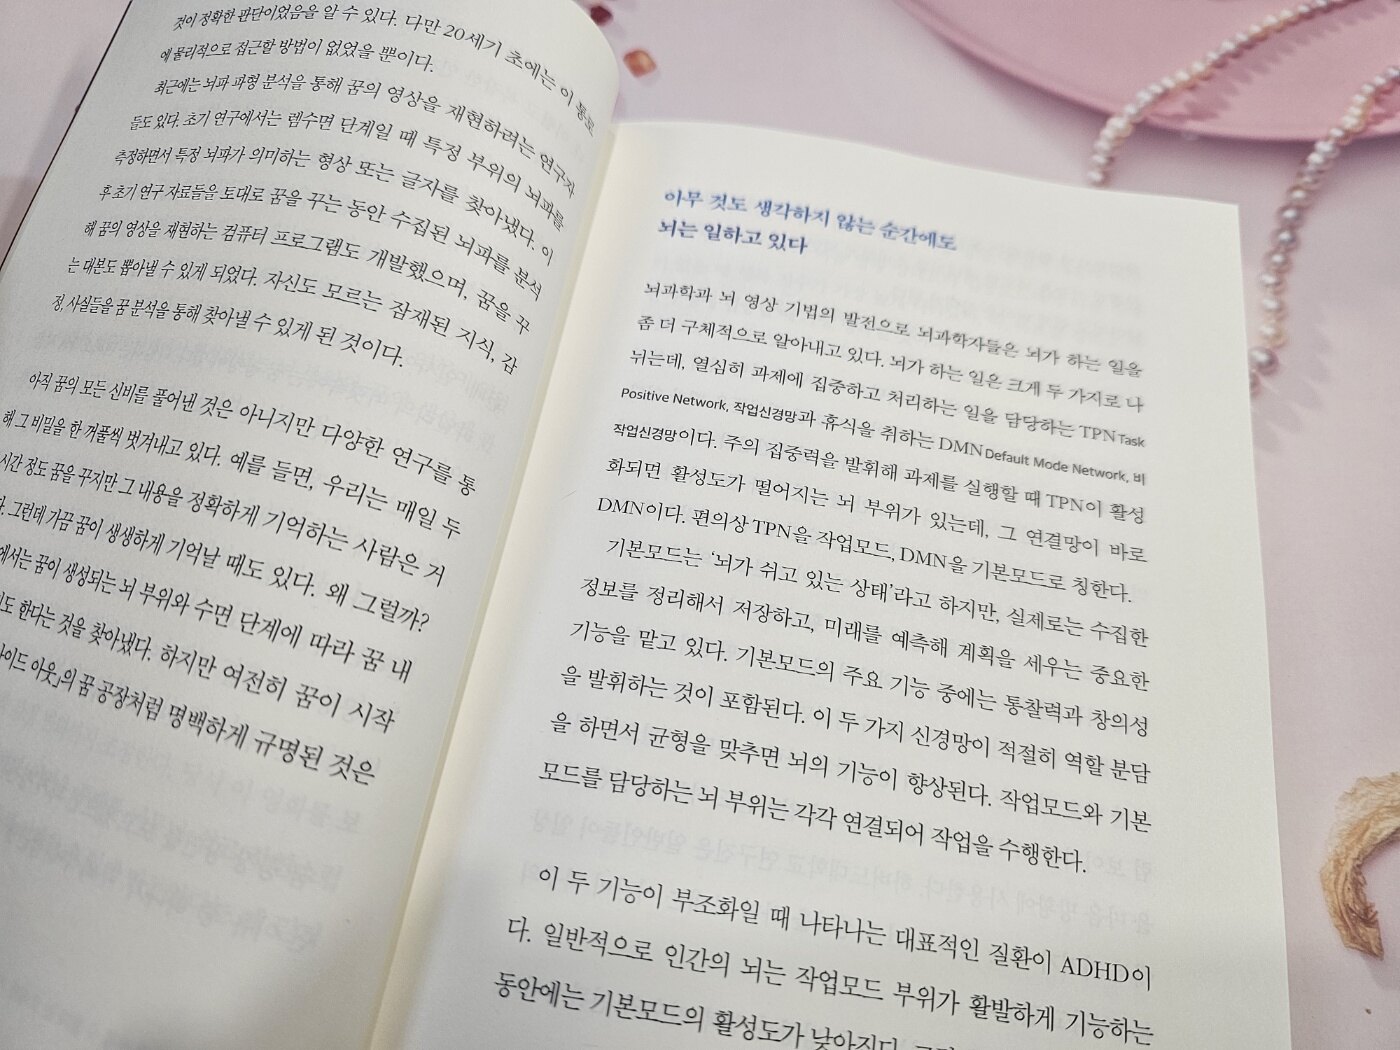 것이 정확한 판단이었음을 알 수 있다. 다만 20세기 초에는 이 통로
에 물리적으로 접근할 방법이 없었을 뿐이다.
최근에는 뇌파 파형 분석을 통해 꿈의 영상을 재현하려는 연구자
들도 있다. 초기 연구에서는 렘수면 단계일 때 특정 부위의 뇌파를
측정하면서 특정 뇌파가 의미하는 형상 또는 글자를 찾아냈다. 이
후 초기 연구 자료들을 토대로 꿈을 꾸는 동안 수집된 뇌파를 분석
해 꿈의 영상을 재현하는 컴퓨터 프로그램도 개발했으며, 꿈을 꾸
는 대본도 뽑아낼 수 있게 되었다. 자신도 모르는 잠재된 지식, 감
정, 사실들을 꿈 분석을 통해 찾아낼 수 있게 된 것이다.
아직 꿈의 모든 신비를 풀어낸 것은 아니지만 다양한 연구를 통
해 그 비밀을 한 꺼풀씩 벗겨내고 있다. 예를 들면, 우리는 매일 두
시간 정도 꿈을 꾸지만 그 내용을 정확하게 기억하는 사람은 거
그런데 가끔 꿈이 생생하게 기억날 때도 있다. 왜 그럴까?
에서는 꿈이 생성되는 뇌 부위와 수면 단계에 따라 꿈 내
도 한다는 것을 찾아냈다. 하지만 여전히 꿈이 시작
사이드 아웃」의 꿈 공장처럼 명백하게 규명된 것은
아무 것도 생각하지 않는 순간에도
뇌는 일하고 있다
뇌과학과 뇌 영상 기법의 발전으로 뇌과학자들은 뇌가 하는 일을
좀 더 구체적으로 알아내고 있다. 뇌가 하는 일은 크게 두 가지로 나
뉘는데, 열심히 과제에 집중하고 처리하는 일을 담당하는 TPN Task
Positive Network, 작업신경망과 휴식을 취하는 DMN Default Mode Network, 비
작업신경망이다. 주의 집중력을 발휘해 과제를 실행할 때 TPN이 활성
화되면 활성도가 떨어지는 뇌 부위가 있는데, 그 연결망이 바로
DMN이다. 편의상 TPN을 작업모드, DMN을 기본모드로 칭한다.
기본모드는 ‘뇌가 쉬고 있는 상태’라고 하지만, 실제로는 수집한
정보를 정리해서 저장하고, 미래를 예측해 계획을 세우는 중요한
기능을 맡고 있다. 기본모드의 주요 기능 중에는 통찰력과 창의성
을 발휘하는 것이 포함된다. 이 두 가지 신경망이 적절히 역할 분담
을 하면서 균형을 맞추면 뇌의 기능이 향상된다. 작업모드와 기본
모드를 담당하는 뇌 부위는 각각 연결되어 작업을 수행한다.
이 두 기능이 부조화일 때 나타나는 대표적인 질환이 ADHD이
다. 일반적으로 인간의 뇌는 작업모드 부위가 활발하게 기능하는
동안에는 기본모드의 활성도가 낮아진다.